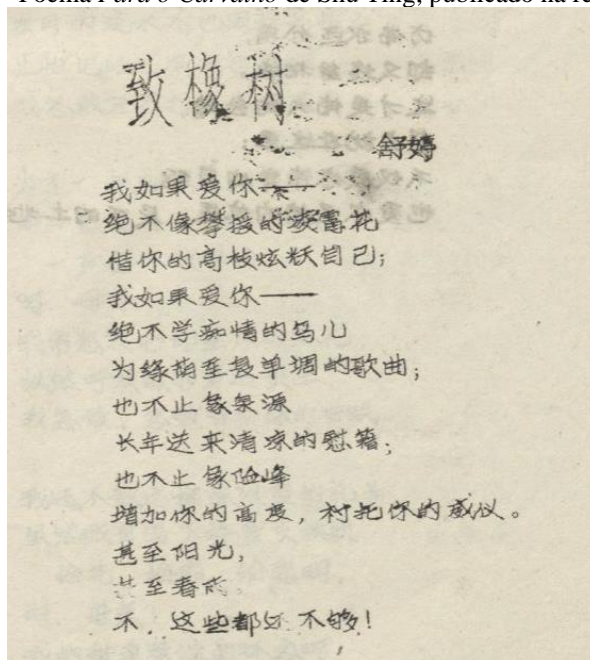 Poema Para o Carvalho de Shu Ting, publicado na
致橡树
舒婷
我如果爱你——
绝不像攀援的凌霄花
借你的高枝炫妖自己;
我如果爱你——
绝不学痴情的鸟儿
为绿荫重复单调的歌曲;
也不止象泉源
长年送来清凉的慰籍;
也不止象险峰
增加你的高度,衬托你的威仪。
甚至阳光,
甚至春雨。
不,这些都还不够!